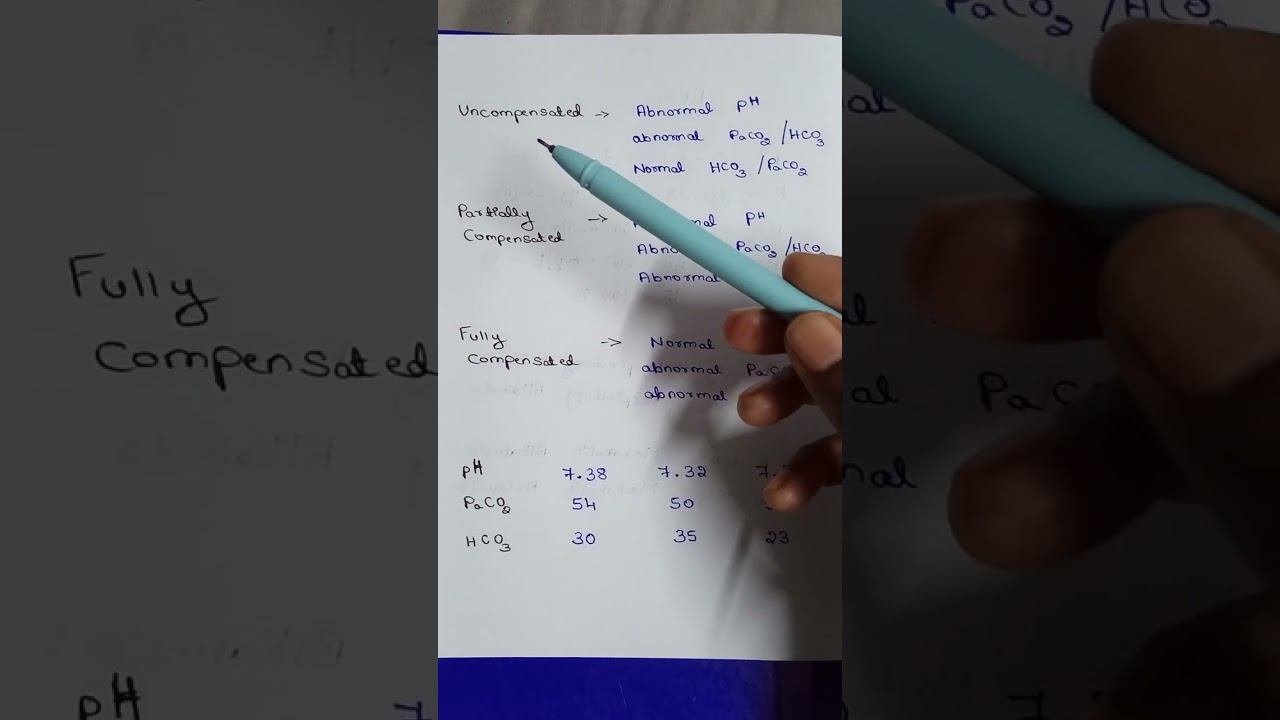 Uncompensated → Abnormal pH
abnormal PaCO2 / HCO3
Normal HCO3 / PaCO2
Partially → pH
Compensated Abno PaCO2 / HCO3
Abnormal
Fully → Normal
Compensated abnormal PaC
abnormal
pH 7.38 7.32 7.
PaCO2 54 50
HCO3 30 35 23